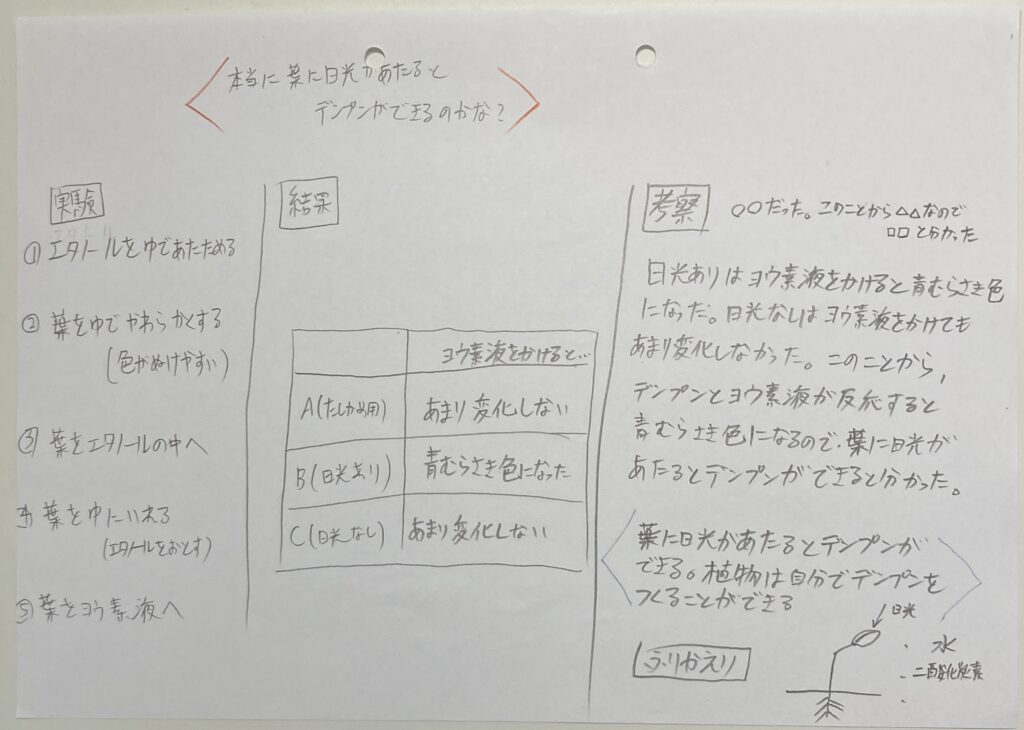 本当に葉に日光があたると
デンプンができるのかな?
実験
①エタノールをゆであたためる
②葉をゆでやわらかくする
(色がぬけやすい)
③葉をエタノールの中へ
④葉をゆにいれる
(エタノールをおとす)
⑤葉をヨウ素液へ
結果
ヨウ素液をかけると…
A(たしかめ用) あまり変化しない
B(日光あり) 青むらさき色になった
C(日光なし) あまり変化しない
考察
○○だった。このことから△△なので
□□と分かった
日光ありはヨウ素液をかけると青むらさき色
になった。日光なしはヨウ素液をかけても
あまり変化しなかった。このことから,
デンプンとヨウ素液が反応すると
青むらさき色になるので、葉に日光が
あたるとデンプンができると分かった。
葉に日光があたるとデンプンが
できる。植物は自分でデンプンを
つくることができる
ふりかえり
日光
・水
・二酸化炭素
・